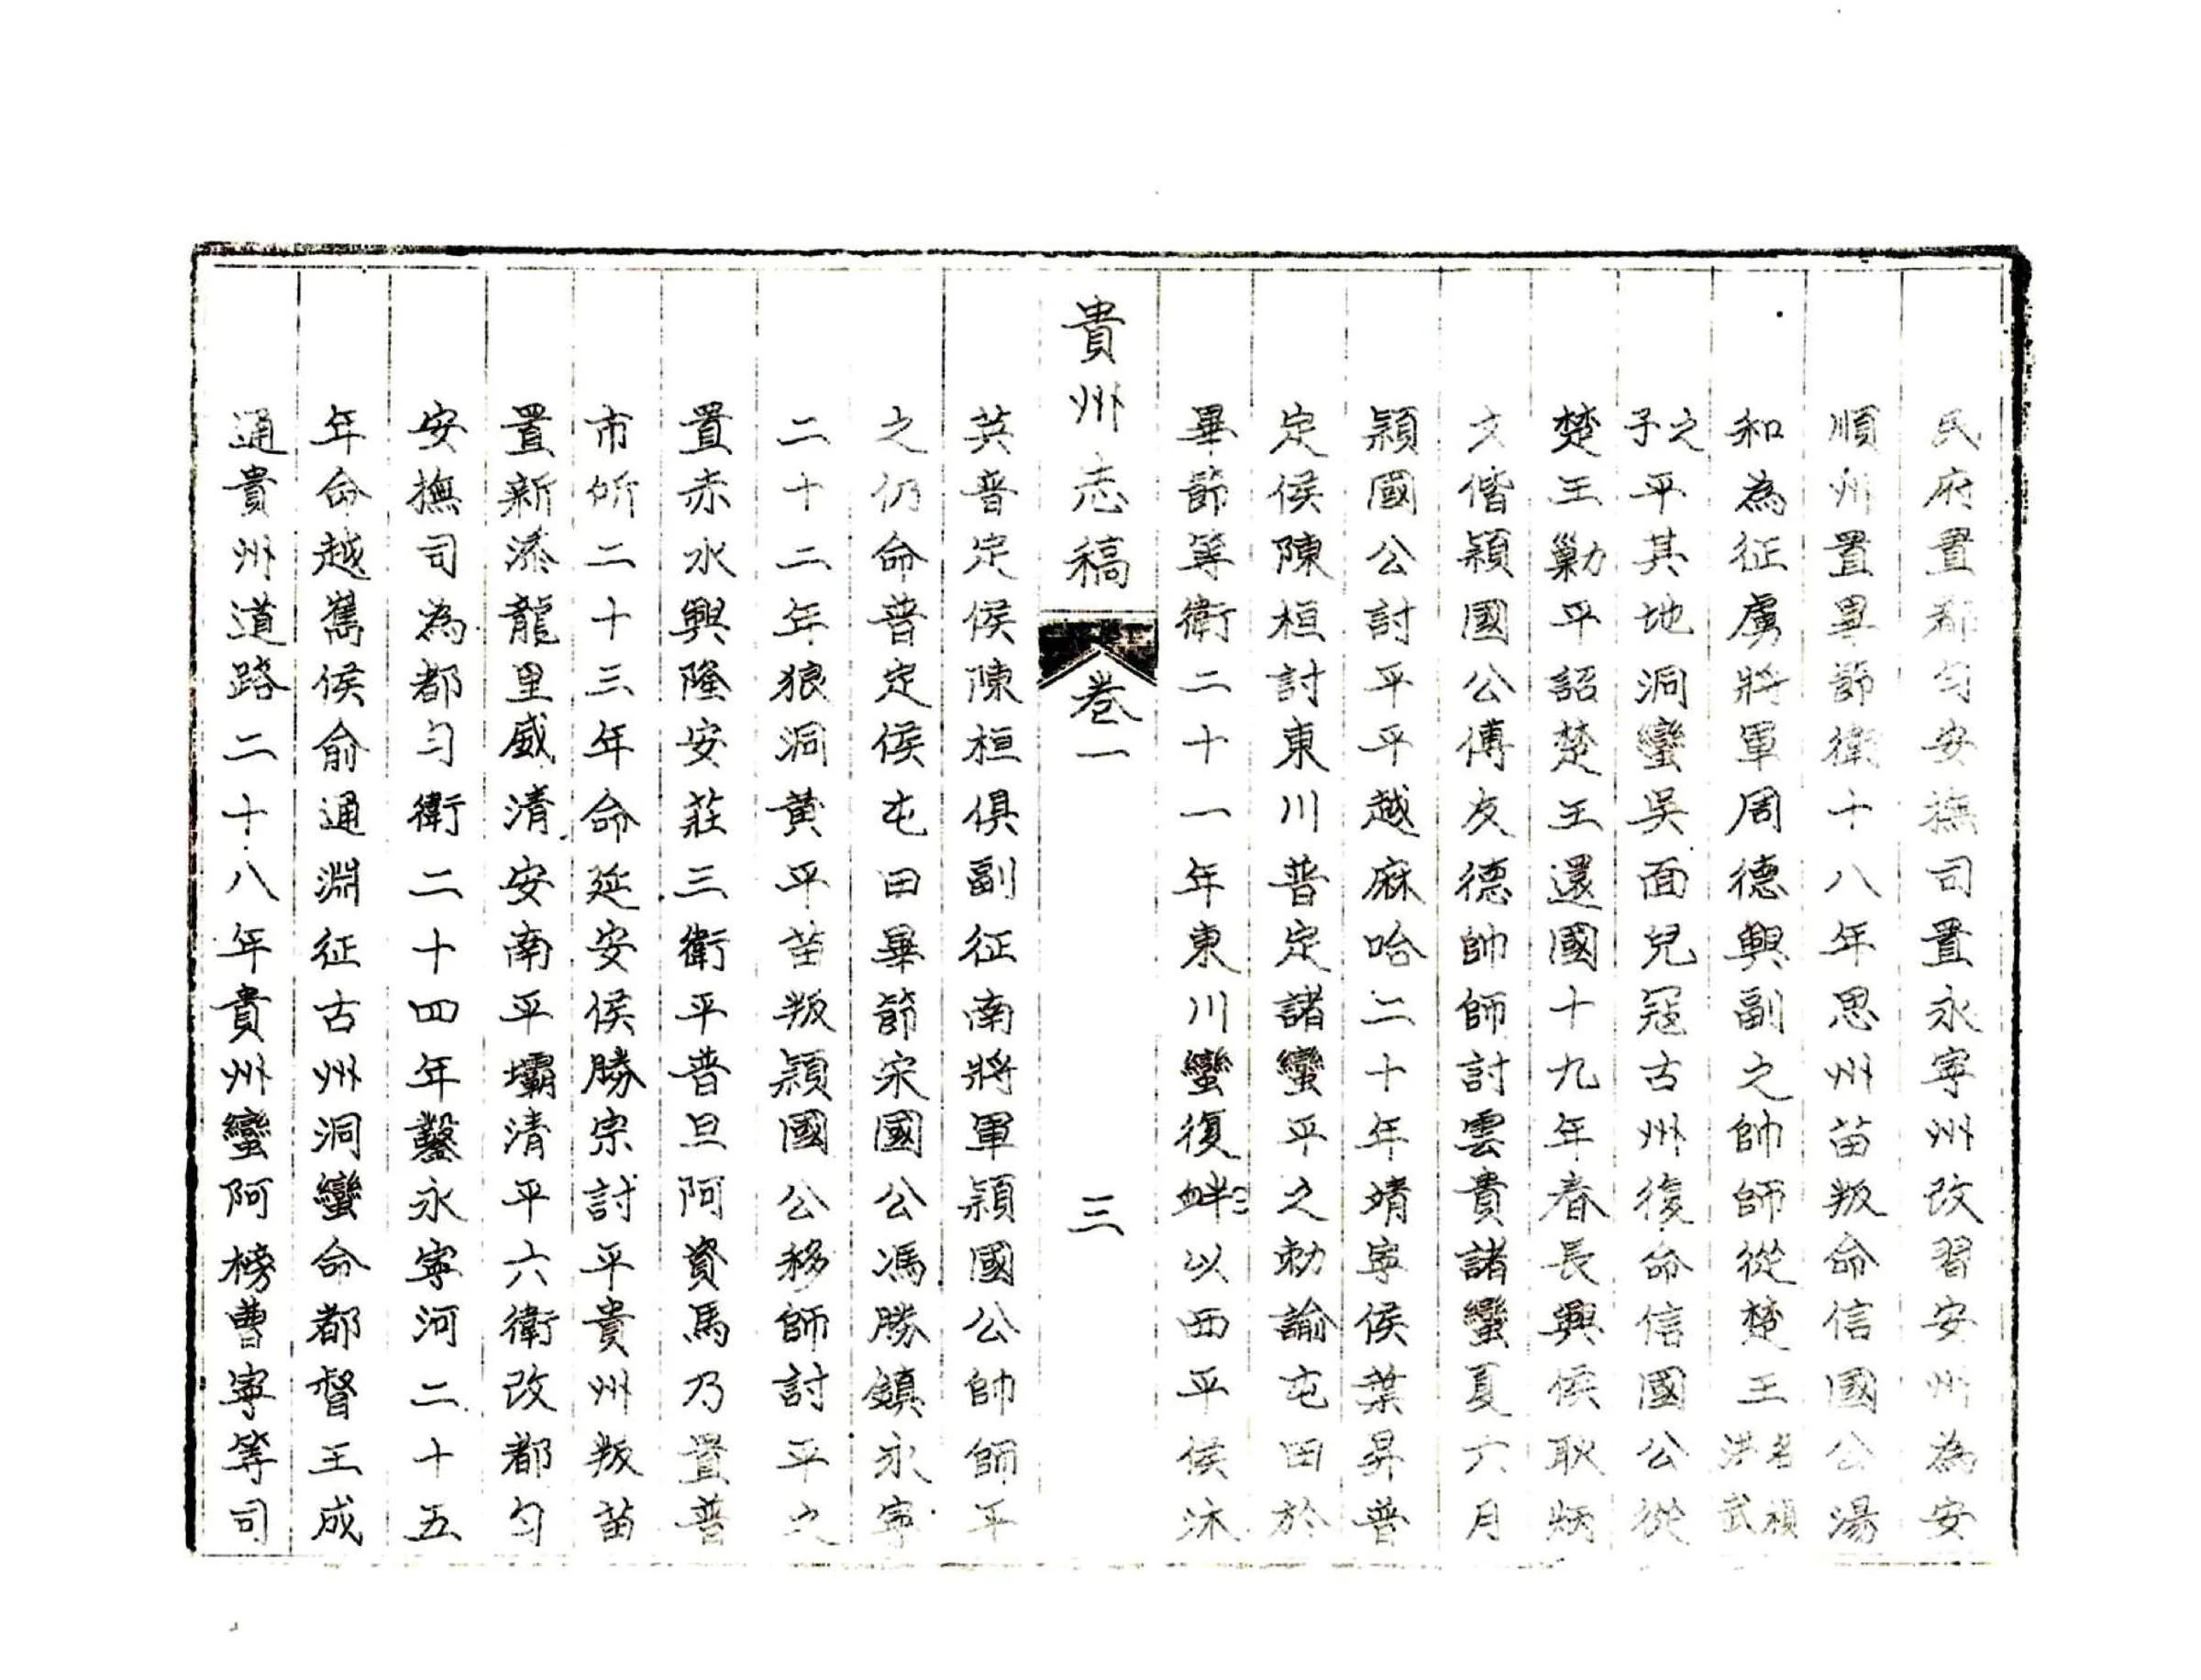 民府置都匀安撫司置永寧州改習安州為安
順州置畢節衛十八年思州苗叛命信國公湯
和為征虜將軍周德興副之帥師從楚王名楨洪武
之子平其地洞蠻吳面兒冦古州復命信國公從
楚王勦平詔楚王還國十九年春長興侯耿炳
文偕潁國公傅友德帥師討雲貴諸蠻夏六月
潁國公討平平越麻哈二十年靖寧侯葉昇普
定侯陳桓討東川普定諸蠻平之勅諭屯田於
畢節等衛二十一年東川蠻復衅以西平侯沐
貴州志稿 卷一 三
英普定侯陳桓俱副征南將軍潁國公帥師平
之仍命普定侯屯田畢節宋國公馮勝鎮永寧
二十二年狼洞黄平苗叛潁國公移師討平之
置赤水興隆安莊三衛平普旦阿資馬乃置普
市所二十三年命延安侯勝宗討平貴州叛苗
置新添龍里威清安南平壩清平六衛改都匀
安撫司為都匀衛二十四年鑿永寧河二十五
年命越嶲侯俞通淵征古州洞蠻命都督王成
通貴州道路二十八年貴州蠻阿榜曹寧等司